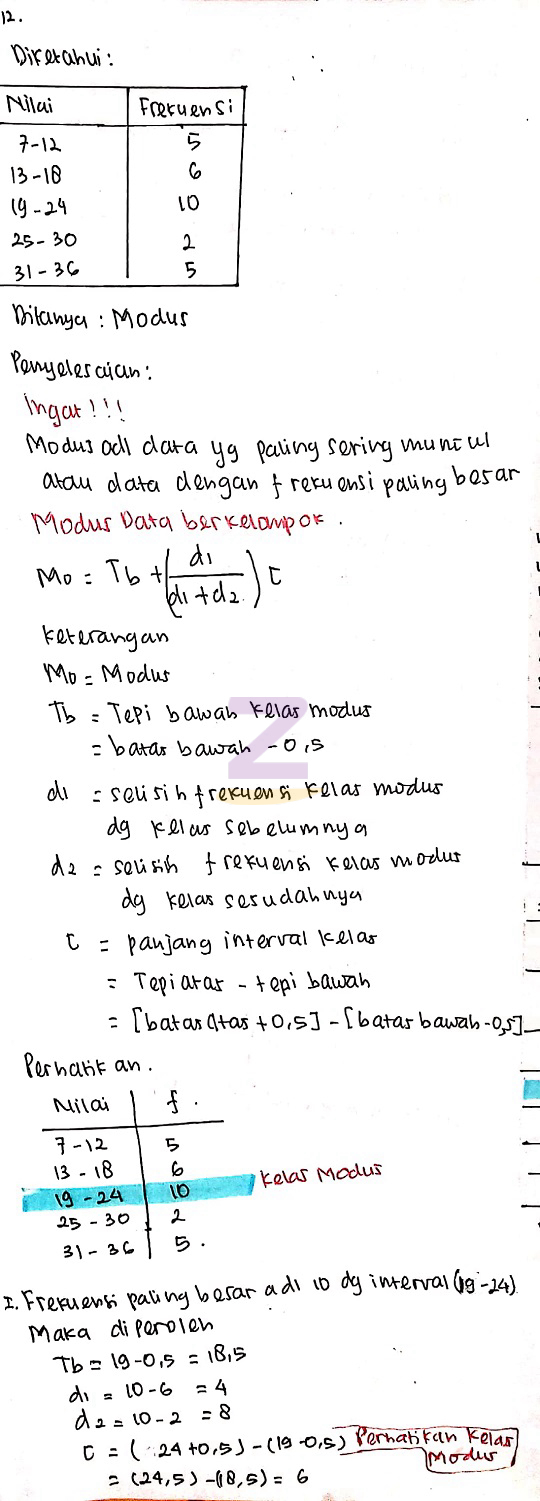 12.
Diketahui:
Nilai Frekuensi
7-12 5
13-18 6
19-24 10
25-30 2
31-36 5
Ditanya : Modus
Penyelesaian:
Ingat!!!
Modus adl data yg paling sering muncul
atau data dengan frekuensi paling besar
Modus Data berkelompok.
Mo = Tb + (d1/(d1+d2)) C
Keterangan
Mo = Modus
Tb = Tepi bawah kelas modus
= batas bawah -0,5
d1 = selisih frekuensi kelas modus
dg kelas sebelumnya
d2 = selisih frekuensi kelas modus
dg kelas sesudahnya
C = panjang interval kelas
= Tepi atas - tepi bawah
= [batas atas +0,5] - [batas bawah -0,5]
Perhatikan.
Nilai f.
7-12 5
13-18 6
19-24 10 Kelas Modus
25-30 2
31-36 5.
I. Frekuensi paling besar adl 10 dg interval (19-24)
Maka diperoleh
Tb = 19-0,5 = 18,5
d1 = 10-6 = 4
d2 = 10-2 = 8
C = (24+0,5) - (19-0,5) Perhatikan Kelas
Modus
= (24,5) - (18,5) = 6